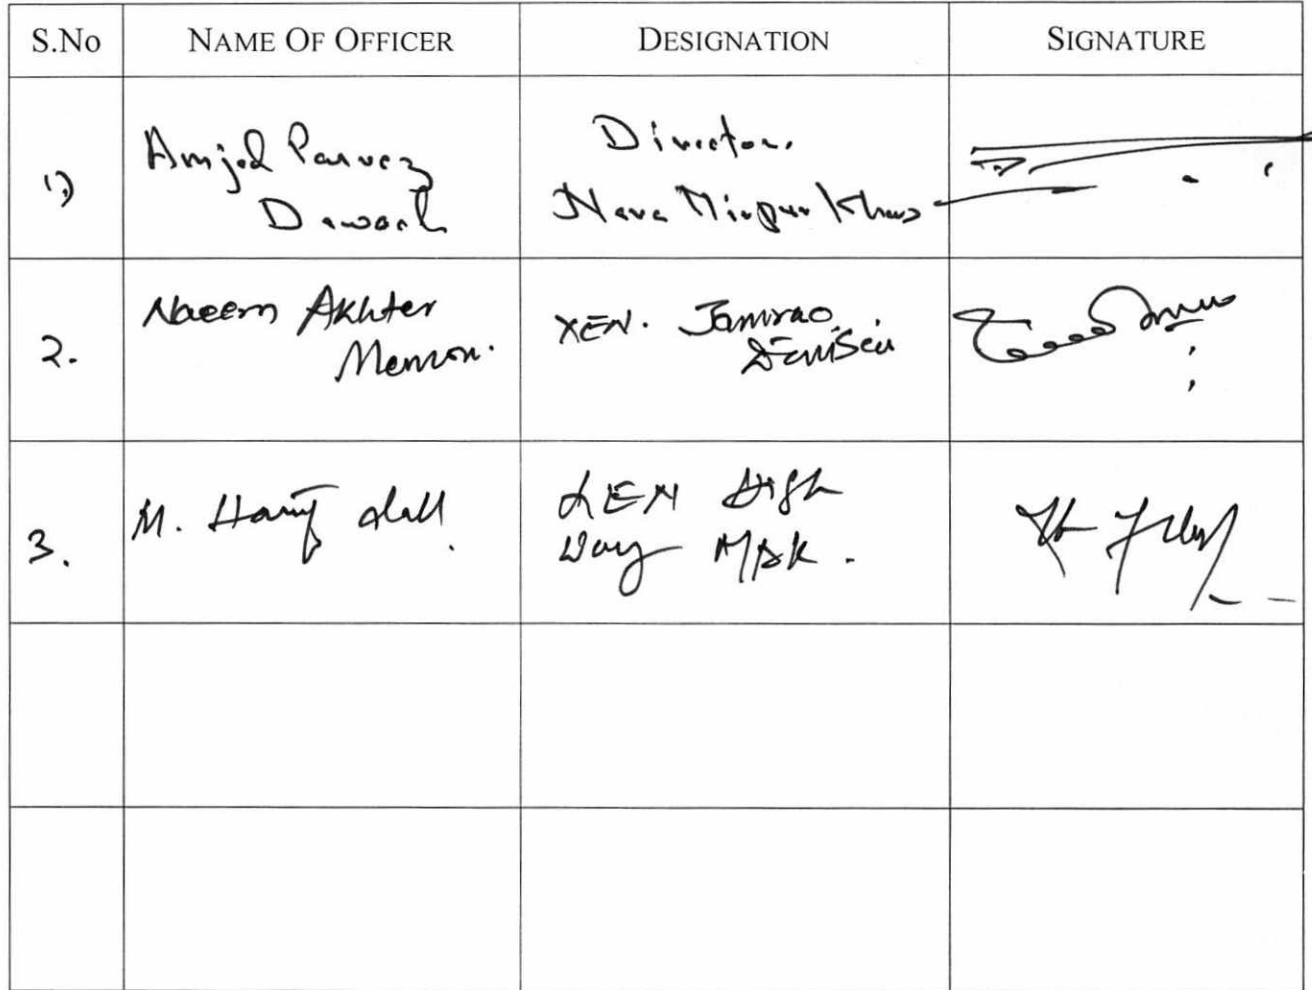 S.No NAME OF OFFICER DESIGNATION SIGNATURE
1) Amjad Parvez Director.
Nara Mirpur Khas
2. Naeem Akhter XEN. Jamrao
Memon. Division
3. M. Hanif XEN High
Way MPK.